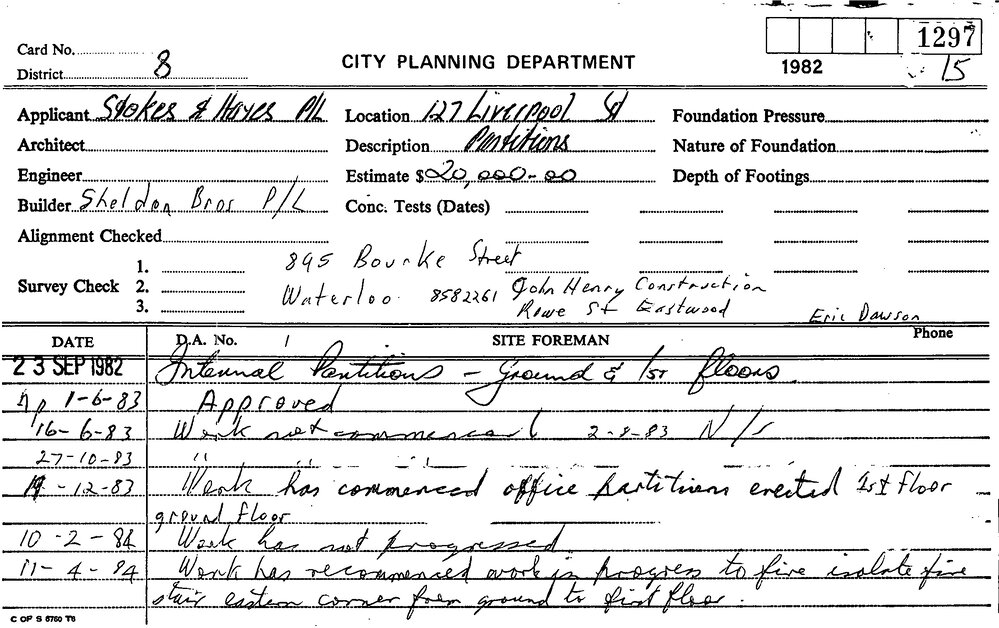 1297
Card No.
District 8
CITY PLANNING DEPARTMENT
1982
15
Applicant Stokes & Hayes P/L Location 127 Liverpool St Foundation Pressure
Architect Description Partitions Nature of Foundation
Engineer Estimate $20,000-00 Depth of Footings
Builder Sheldon Bros P/L Conc. Tests (Dates)
Alignment Checked
895 Bourke Street
1.
Survey Check 2.
3.
Waterloo 8582261 John Henry Construction
Rowe St Eastwood Eric Dawson
DATE D.A. No. 1 SITE FOREMAN Phone
23 SEP 1982 Internal Partitions - Ground & 1st floors.
1-6-83 Approved
16-6-83 Work not commenced 2-8-83 N/S
27-10-83 " " "
19-12-83 Work has commenced office partitions erected 1st floor
ground floor
10-2-84 Work has not progressed
11-4-84 Work has recommenced work in progress to fire isolate fire
stair eastern corner from ground to first floor.
C OF S 5750 T6